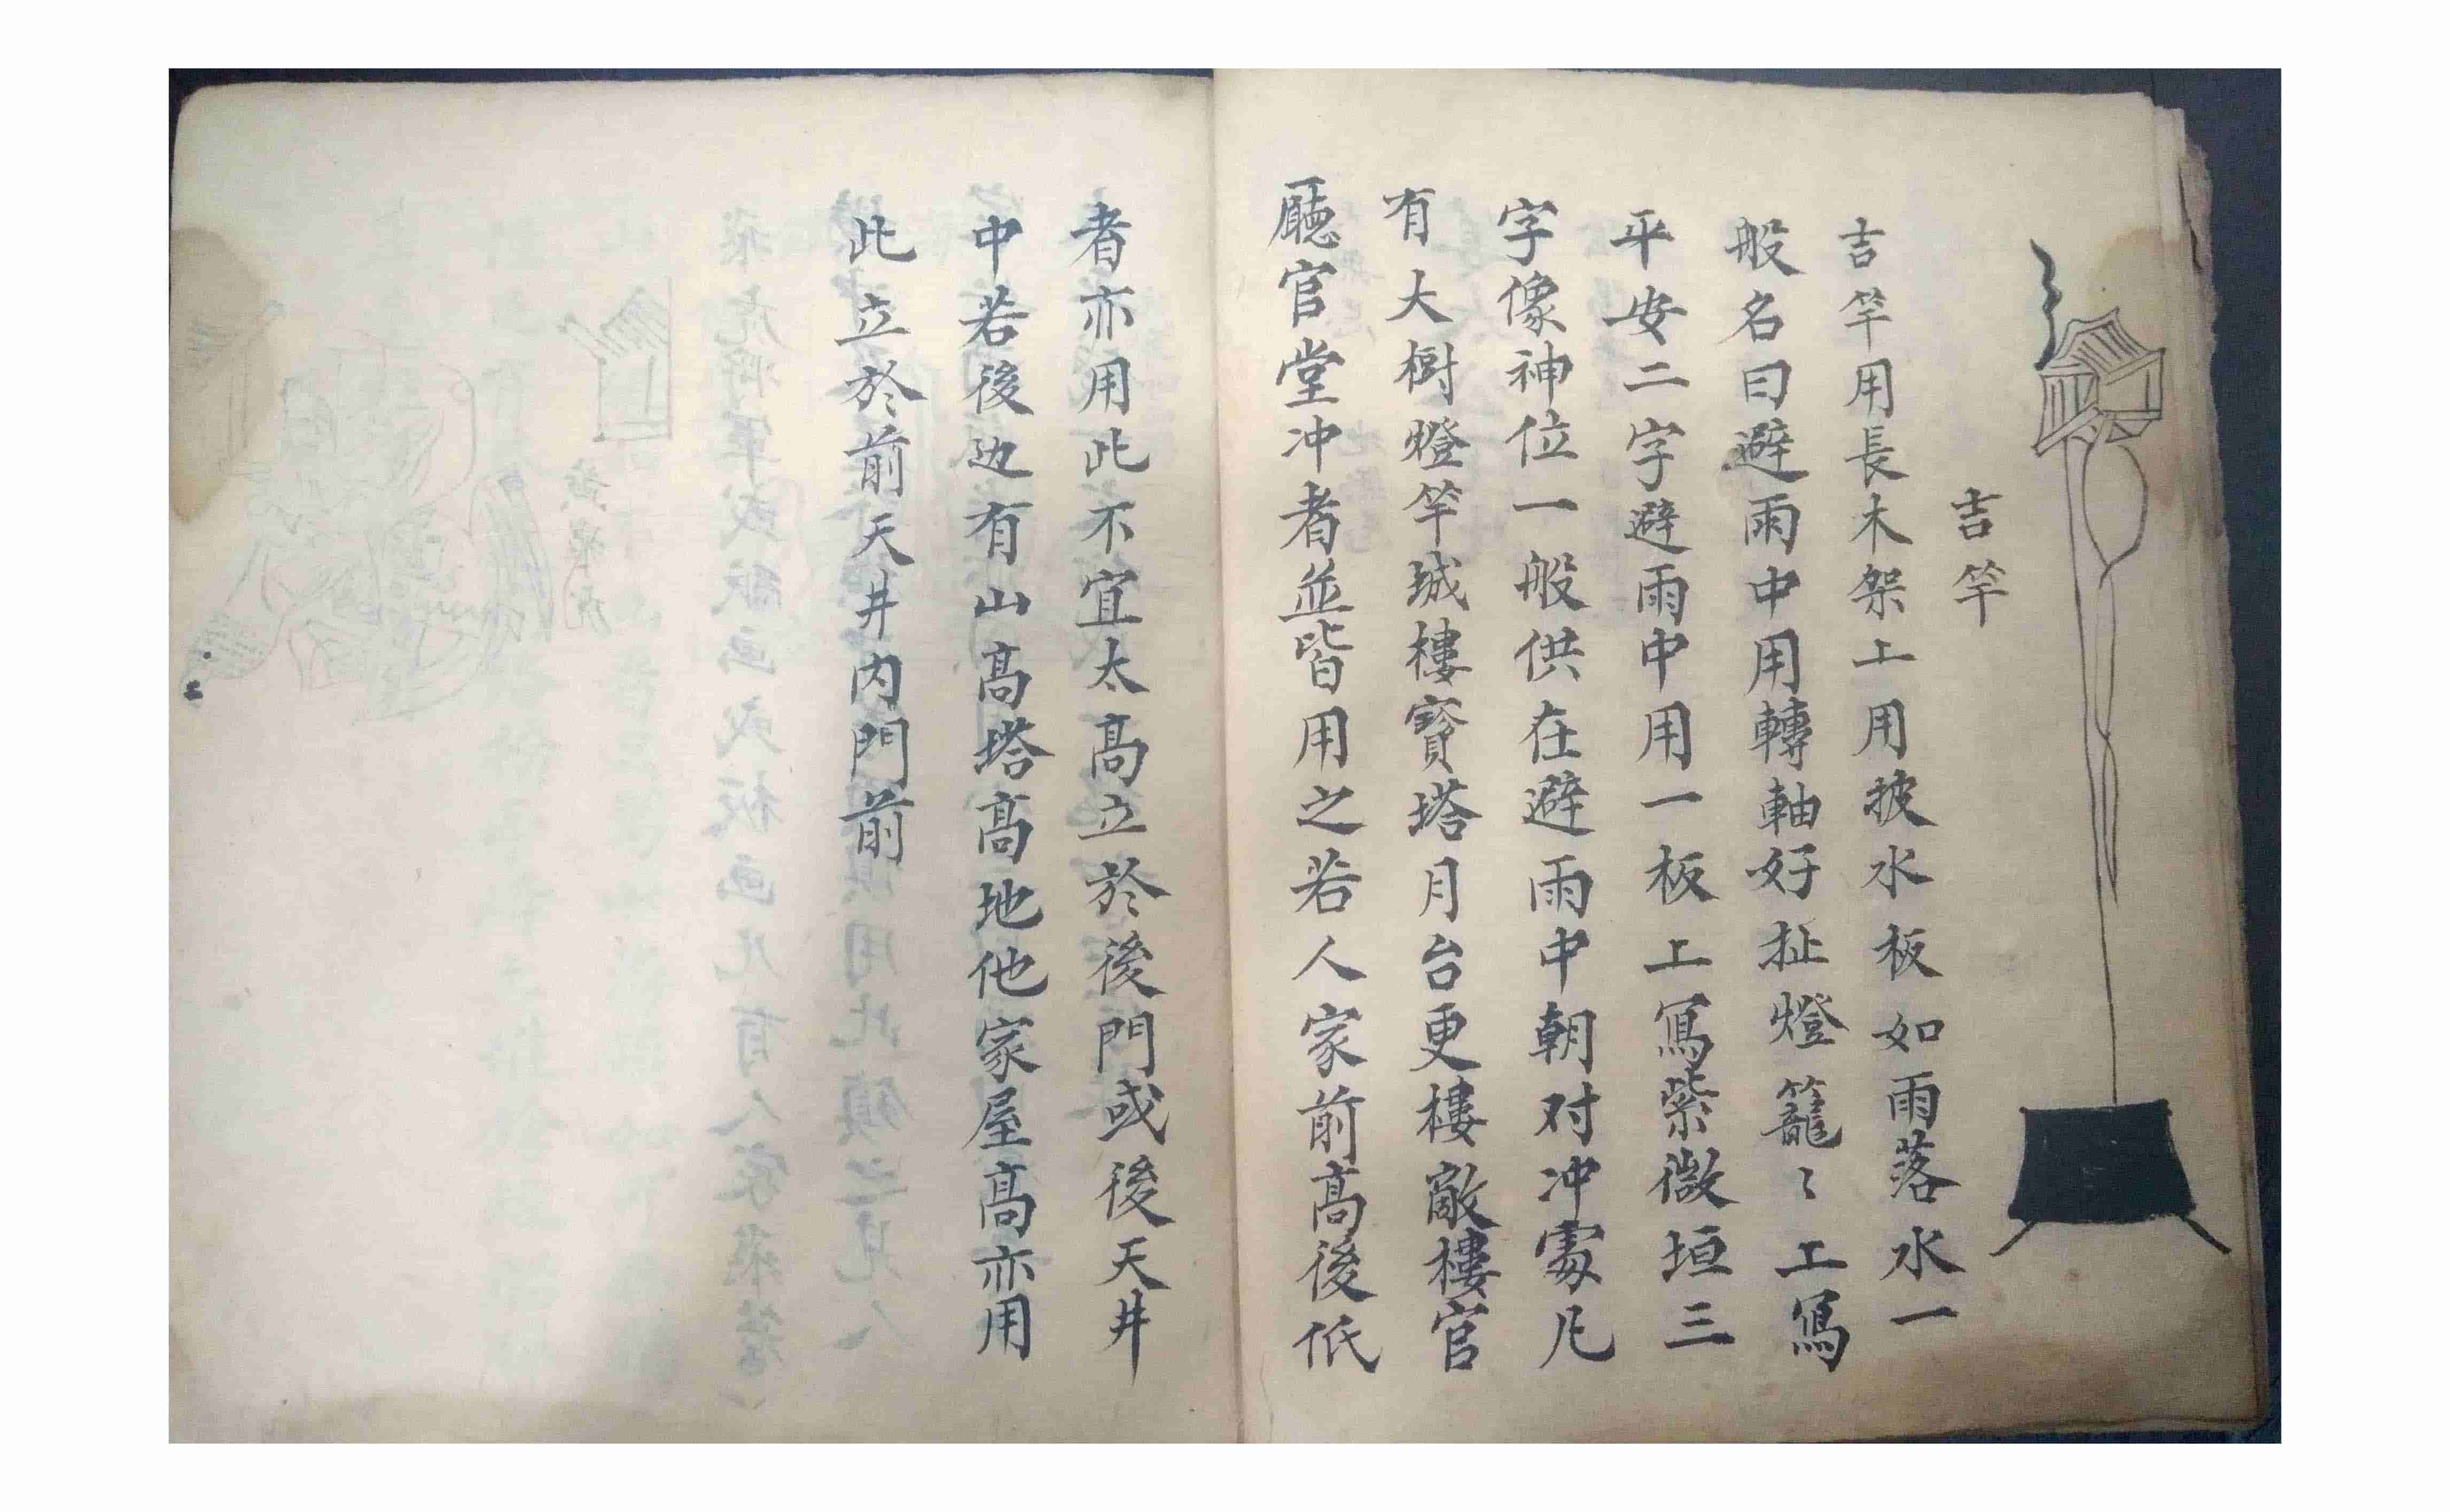 吉竿
吉竿用長木架上用披水板如雨落水一
般名曰避雨中用轉軸好扯燈籠〻上寫
平安二字避雨中用一板上寫紫微垣三
字像神位一般供在避雨中朝对冲處凡
有大樹燈竿城樓寶塔月台更樓敵樓官
廳官堂冲者並皆用之若人家前高後低
者亦用此不宜太高立於後門或後天井
中若後边有山高塔高地他家屋高亦用
此立於前天井内門前